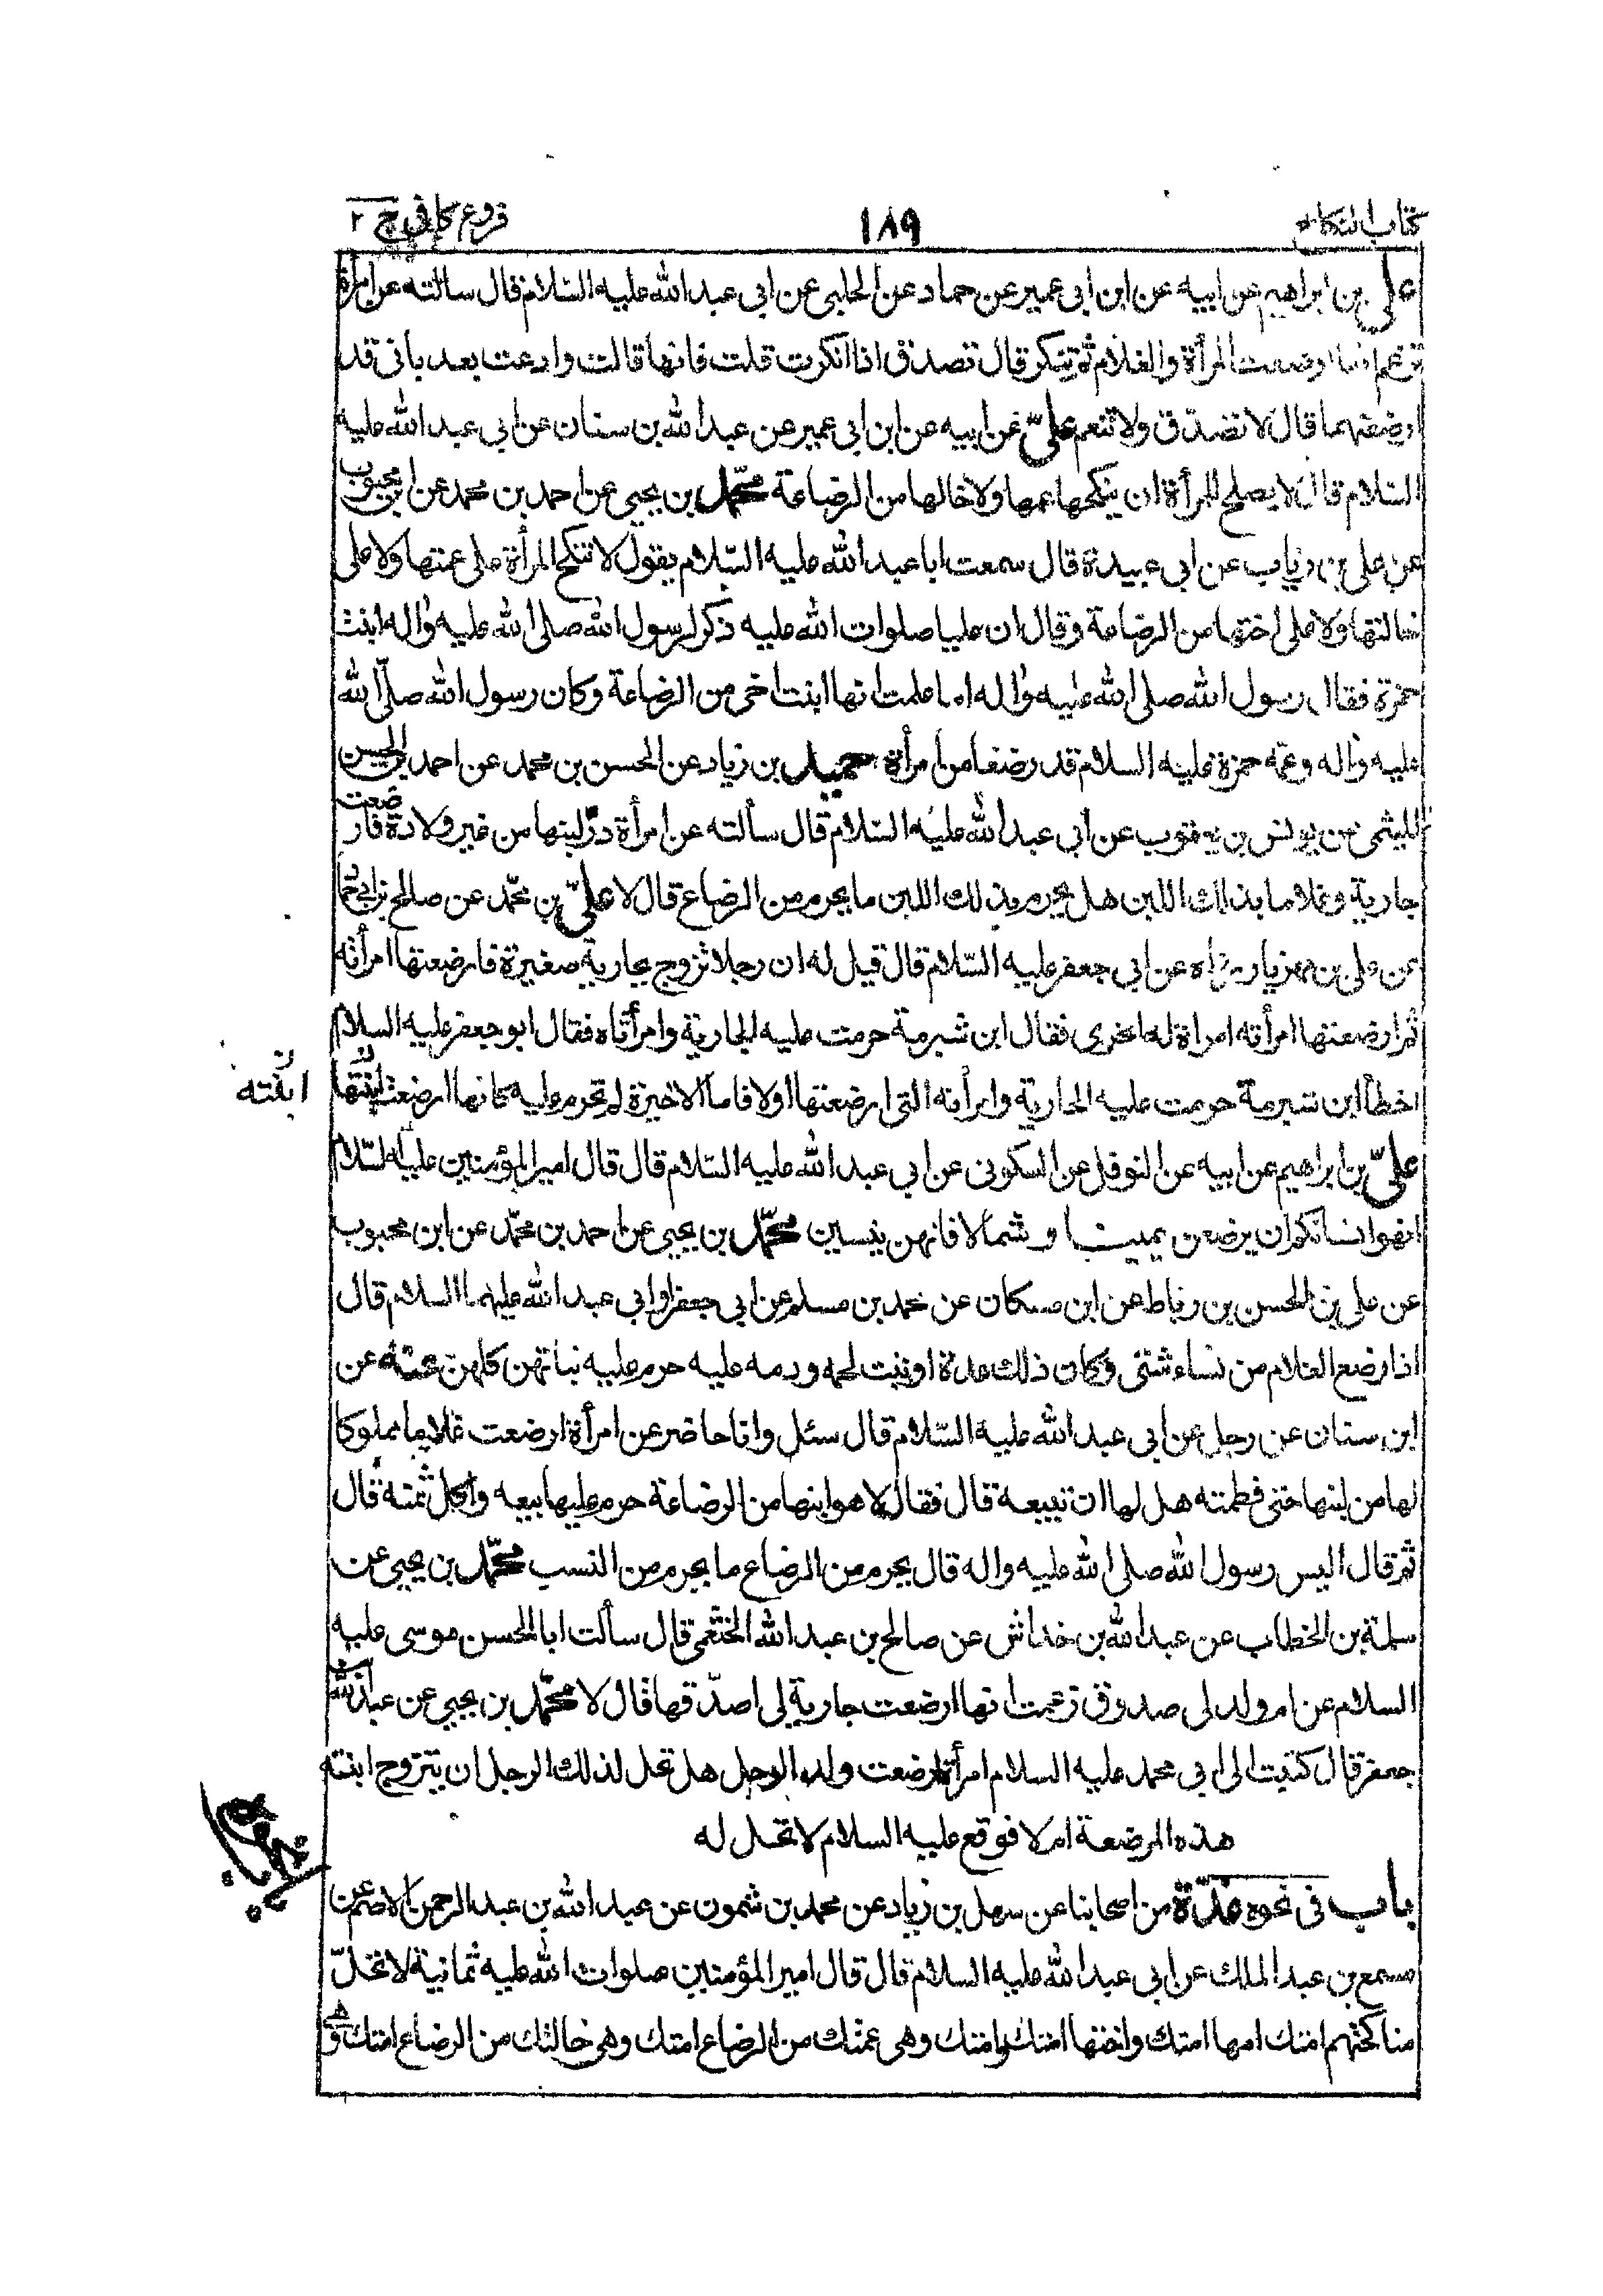 كتاب النكاح
١٨٩
فروع كافى ج ٢
على بن ابراهيم عن ابيه عن ابن ابى عمير عن حماد عن الحلبى عن ابى عبد الله عليه السلام قال سالته عن امرأة
تزعم انها ارضعت المرأة والغلام ثم تنكر قال تصدق اذا انكرت قلت فانها قالت وادعت بعد بانى قد
ارضعتهما قال لا تصدق ولا تنعم علىّ عن ابيه عن ابن ابى عمير عن عبد الله بن سنان عن ابى عبد الله عليه
السلام قال لا يصلح للمرأة ان ينكحها عمها ولا خالها من الرضاعة محمّد بن يحيى عن احمد بن محمد عن ابن محبوب
عن على بن رياب عن ابى عبيدة قال سمعت ابا عبد الله عليه السّلام يقول لا تنكح المرأة على عمتها ولا على
خالتها ولا على اختها من الرضاعة وقال ان عليا صلوات الله عليه ذكر لرسول الله صلى الله عليه واله ابنت
حمزة فقال رسول الله صلى الله عليه واله اما علمت انها ابنت اخى من الرضاعة وكان رسول الله صلّى الله
عليه واله وعمه حمزة عليه السلام قد رضعا من امرأة حميد بن زياد عن الحسن بن محمد عن احمد بن الحسن
الليثمى عن يونس بن يعقوب عن ابى عبد الله عليه السلام قال سألته عن امرأة درّ لبنها من غير ولادة فارضعت
جارية وغلاما بذلك اللبن هل يحرم بذلك اللبن ما يحرم من الرضاع قال لا علىّ بن محمّد عن صالح بن ابى حماد
عن على بن مهزيار رواه عن ابى جعفر عليه السّلام قال قيل له ان رجلا تزوج بجارية صغيرة فارضعتها امرأته
ثم ارضعتها امرأته امراة له اخرى فقال ابن شبرمة حرمت عليه الجارية وامرأتاه فقال ابو جعفر عليه السلام
اخطأ ابن شبرمة حرمت عليه الجارية وامرأته التى ارضعتها اولا فاما الاخيرة لم تحرم عليه كانها ارضعت ابنتها
ابنته
علىّ بن ابراهيم عن ابيه عن النوفلى عن السكونى عن ابى عبد الله عليه السّلام قال قال امير المؤمنين عليه السّلام
انهوا نسائكم ان يرضعن يمينا و شمالا فانهن ينسين محمّد بن يحيى عن احمد بن محمّد عن ابن محبوب
عن على بن الحسن بن رباط عن ابن مسكان عن محمد بن مسلم عن ابى جعفر او ابى عبد الله عليهما السلام قال
اذا رضع الغلام من نساء شتى وكان ذلك عدة او نبت لحمه ودمه عليه حرم عليه بناتهن كلهن عنه عن
ابن سنان عن رجل عن ابى عبد الله عليه السّلام قال سئل وانا حاضر عن امرأة ارضعت غلاما مملوكا
لها من لبنها حتى فطمته هل لها ان تبيعه قال فقال لا هو ابنها من الرضاعة حرم عليها بيعه واكل ثمنه قال
ثم قال اليس رسول الله صلى الله عليه واله قال يحرم من الرضاع ما يحرم من النسب محمّد بن يحيى عن
سلمة بن الخطاب عن عبد الله بن خداش عن صالح بن عبد الله الخثعمى قال سألت ابا الحسن موسى عليه
السلام عن ام ولد لى صدوق زعمت انها ارضعت جارية لى اصدّقها قال لا محمّد بن يحيى عن عبد الله بن
جعفر قال كتبت الى ابى محمد عليه السلام امرأة ارضعت ولد الرجل هل تحل لذلك الرجل ان يتزوج ابنته
هذه المرضعة ام لا فوقع عليه السلام لا تحل له
باب فى نحوه عدّة من اصحابنا عن سهل بن زياد عن محمد بن شمون عن عبد الله بن عبد الرحمن الاصم عن
مسمع بن عبد الملك عن ابى عبد الله عليه السلام قال قال امير المؤمنين صلوات الله عليه ثمانية لا تحلّ
مناكحتهم امتك امها امتك واختها امتك وامتك وهى عمتك من الرضاع امتك وهى خالتك من الرضاع امتك وهى